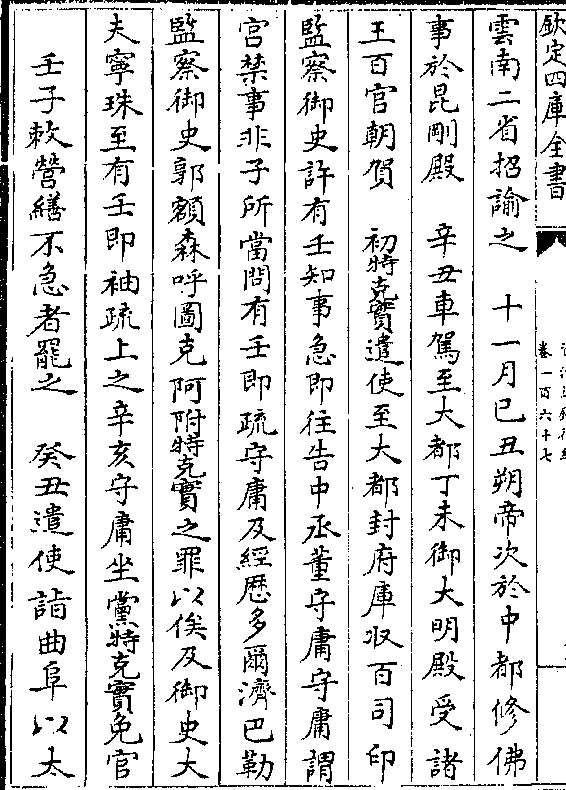 欽定四庫全書
卷一百六十七
雲南二省招諭之　十一月已丑朔帝次於中都修佛
事於昆剛殿　辛丑車駕至大都丁未御大明殿受諸
王百官朝賀　初特克實遣使至大都封府庫收百司印
監察御史許有壬知事急即往告中丞董守庸守庸謂
宫禁事非子所當問有壬即疏守庸及經歴多爾濟巴勒
監察御史郭額森呼圖克阿附特克實之罪以俟及御史大
夫寧珠至有壬即袖疏上之辛亥守庸坐黨特克實免官
壬子敕營繕不急者罷之　癸丑遣使詣曲阜以太